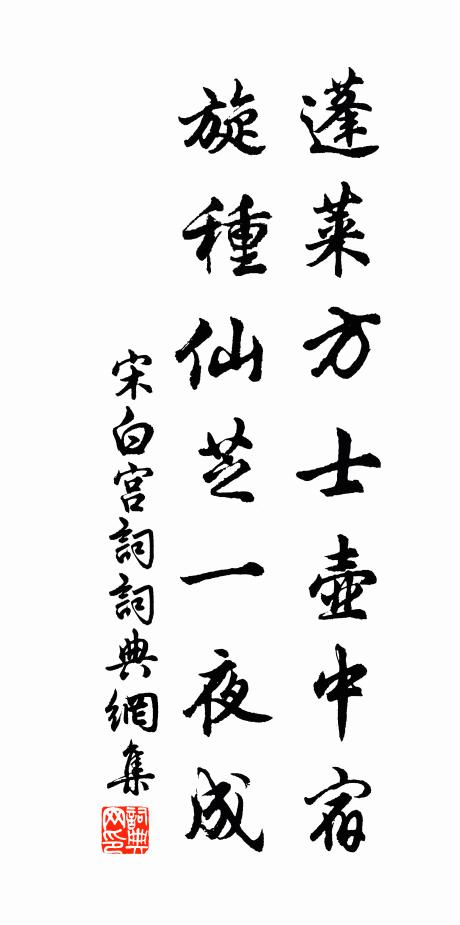 蓬萊方士壺中宿
旋種仙芝一夜成
宋白宮詞詞典網集
詞典網印